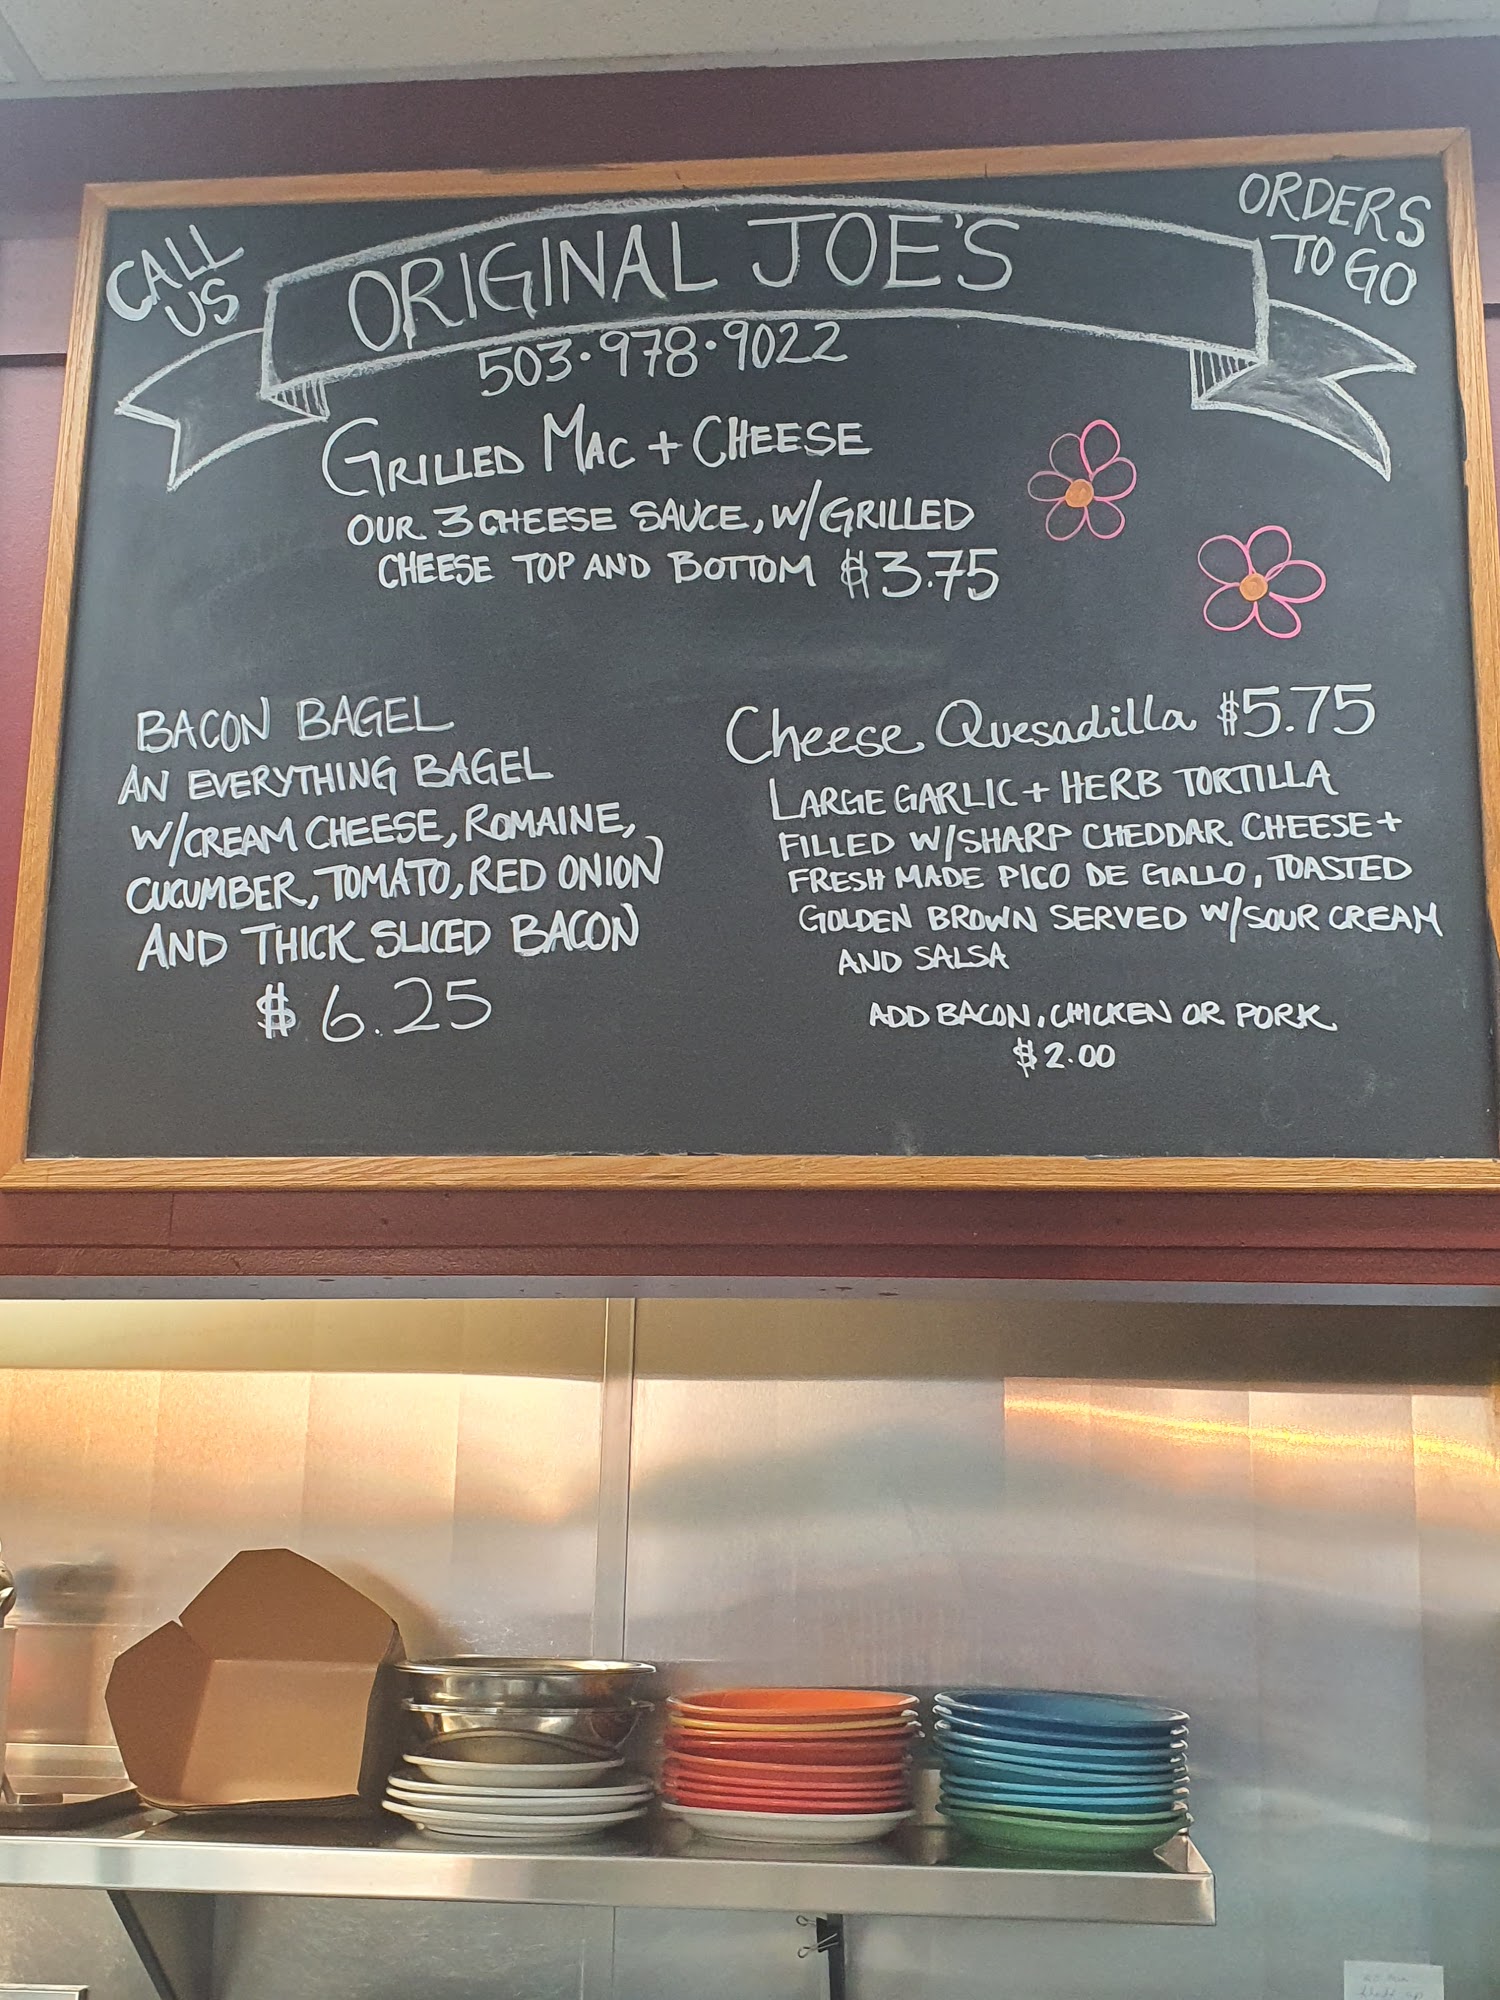 CALL
US
ORIGINAL JOE'S
ORDERS
TO GO
503·978·9022
GRILLED MAC + CHEESE
OUR 3 CHEESE SAUCE, W/GRILLED
CHEESE TOP AND BOTTOM $3.75
BACON BAGEL
AN EVERYTHING BAGEL
W/CREAM CHEESE, ROMAINE,
CUCUMBER, TOMATO, RED ONION
AND THICK SLICED BACON
$ 6.25
Cheese Quesadilla $5.75
LARGE GARLIC + HERB TORTILLA
FILLED W/SHARP CHEDDAR CHEESE +
FRESH MADE PICO DE GALLO, TOASTED
GOLDEN BROWN SERVED W/SOUR CREAM
AND SALSA
ADD BACON, CHICKEN OR PORK
$2.00